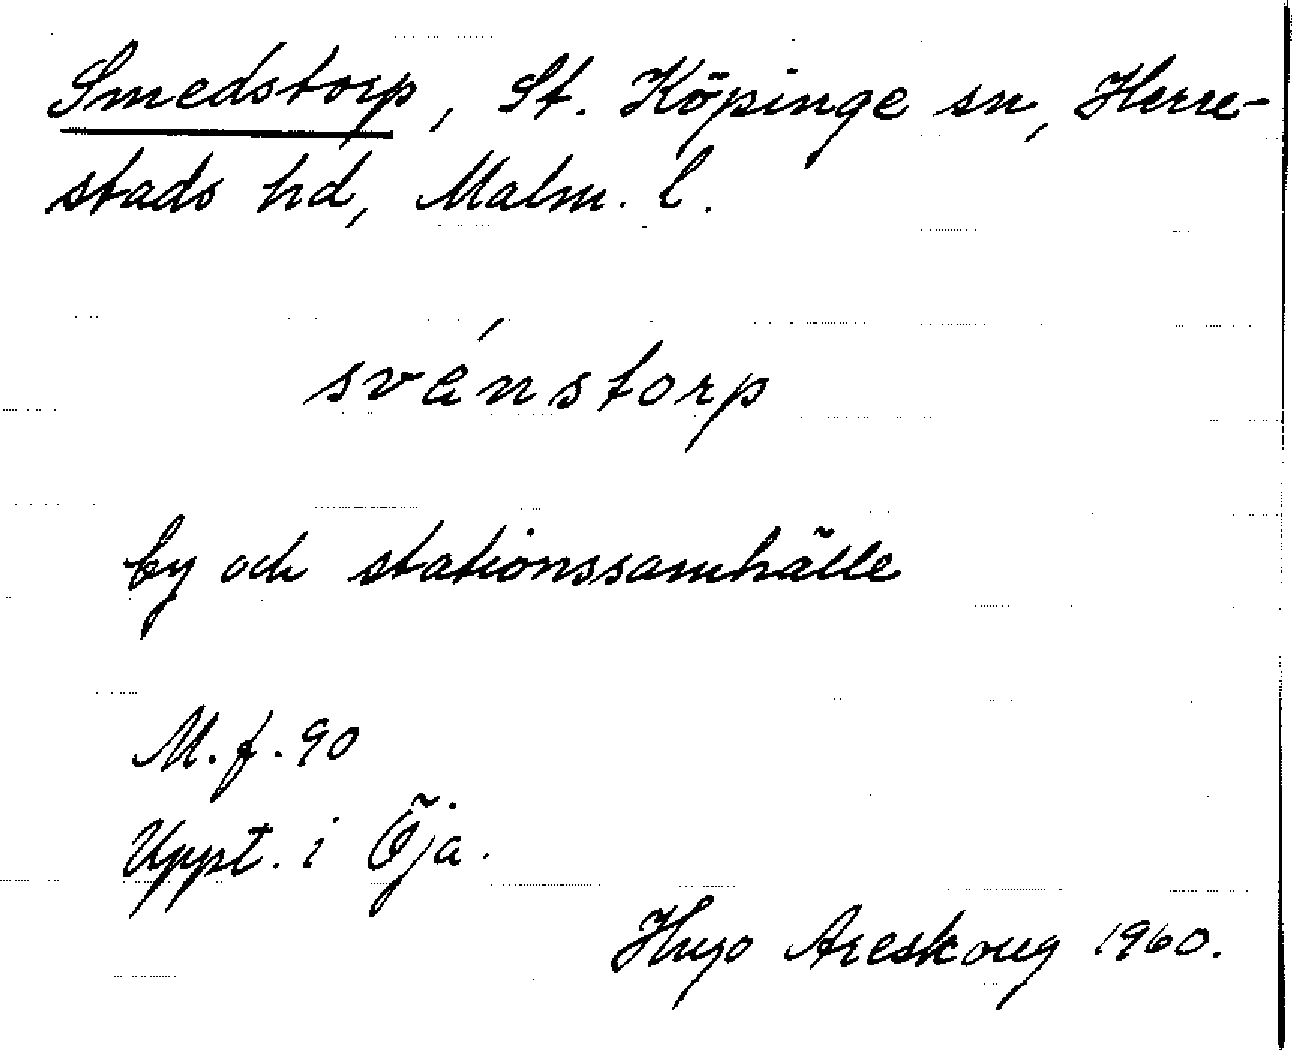 Smedstorp, St. Köpinge sn, Herre-
stads hd, Malm. l.
svénstorp
by och stationssamhälle
M.f. 90
Uppt. i Öja.
Hugo Areskoug 1960.